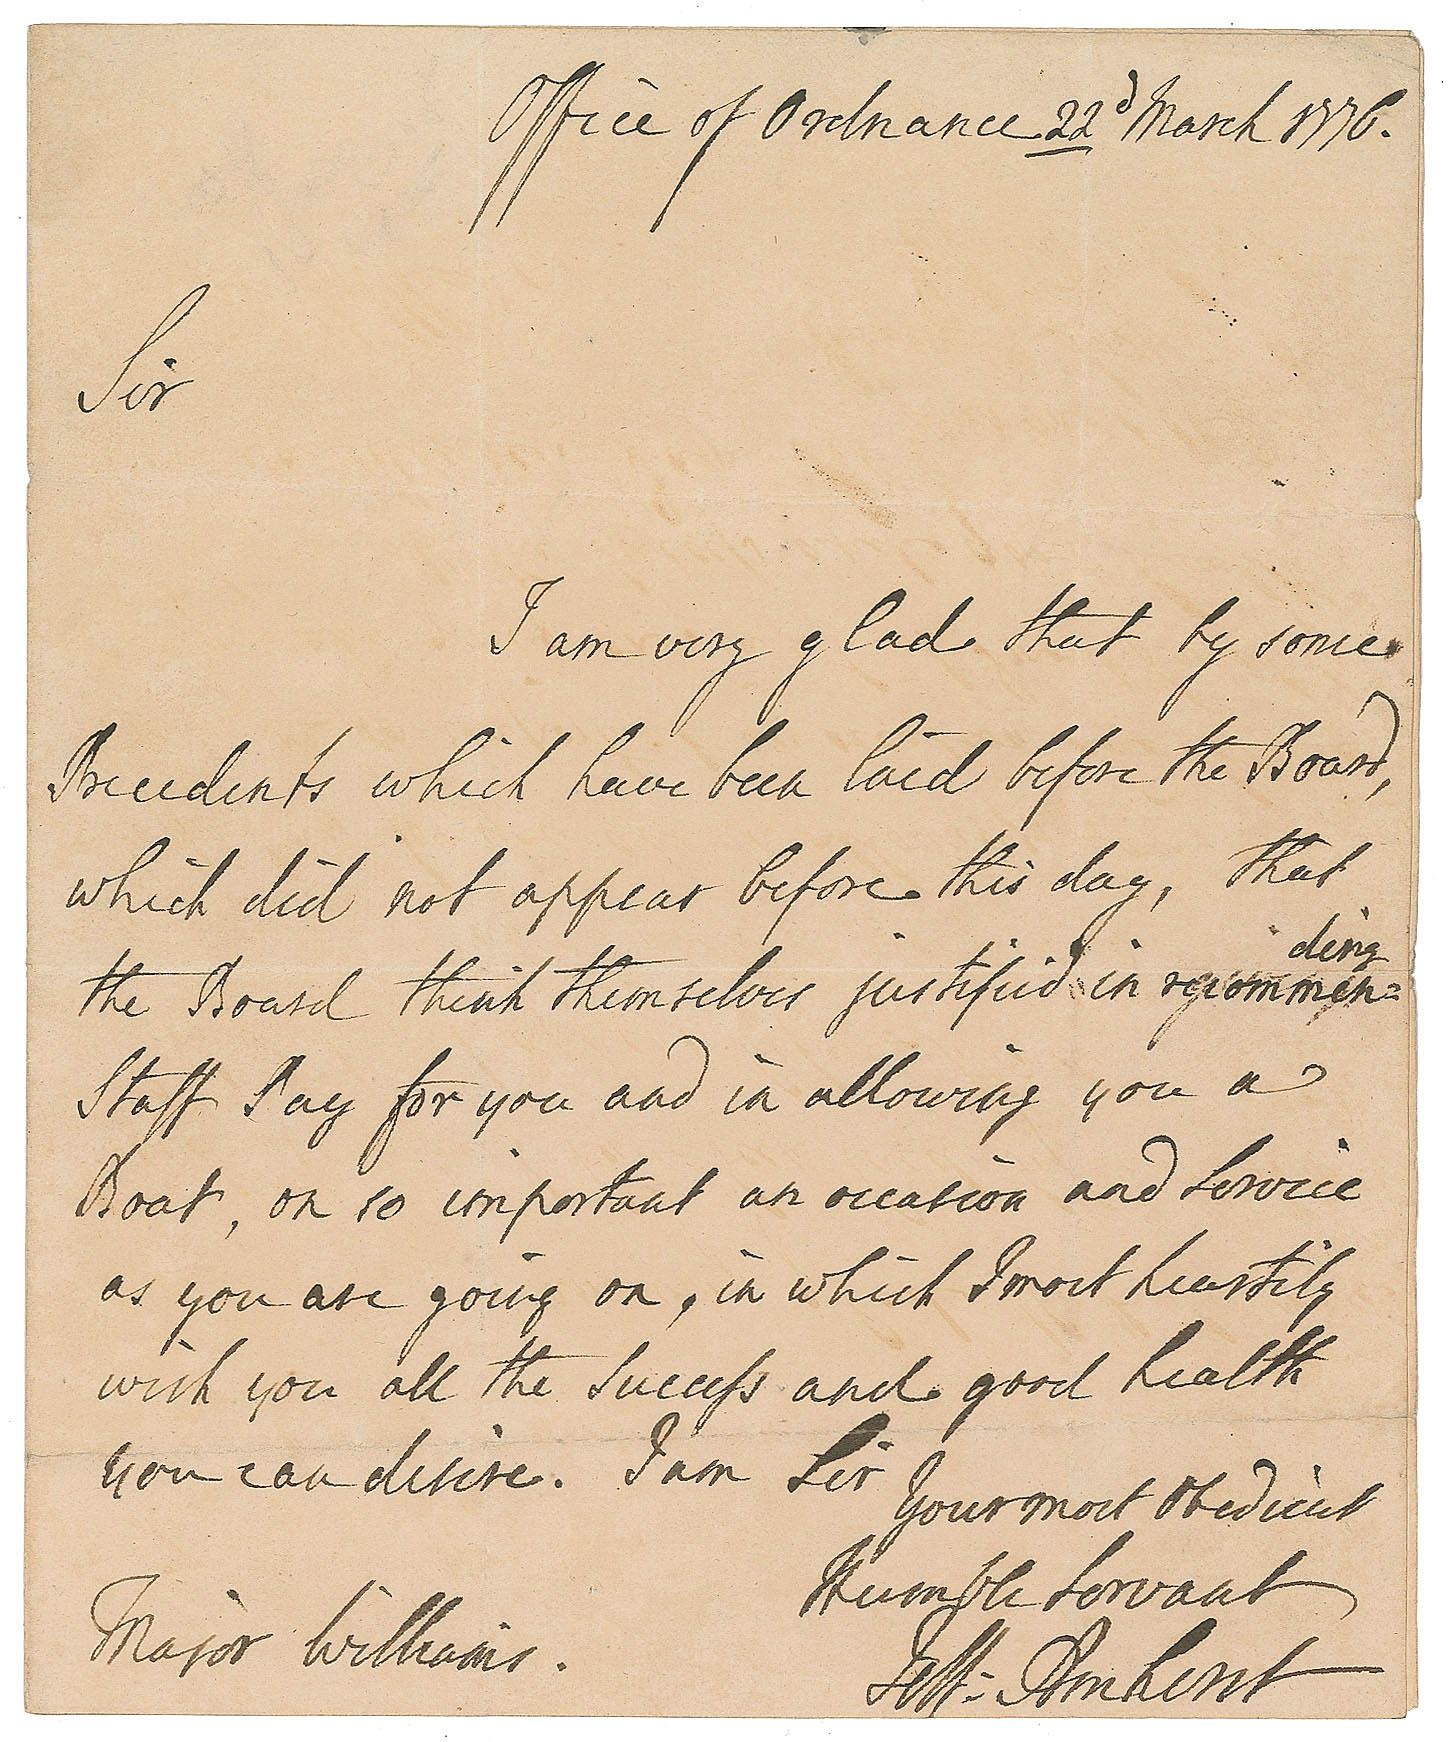 Office of Ordnance 22d March 1776.
Sir
I am very glad that by some
Precedents which have been laid before the Board,
which did not appear before this day, that
the Board think themselves justified in recommen=
ding
Staff Pay for you and in allowing you a
Boat, on so important an occasion and Service
as you are going on, in which I most heartily
wish you all the Success and good health
you can desire. I am Sir
Your most Obedient
Humble Servant
Jeff: Amherst
Major Williams.